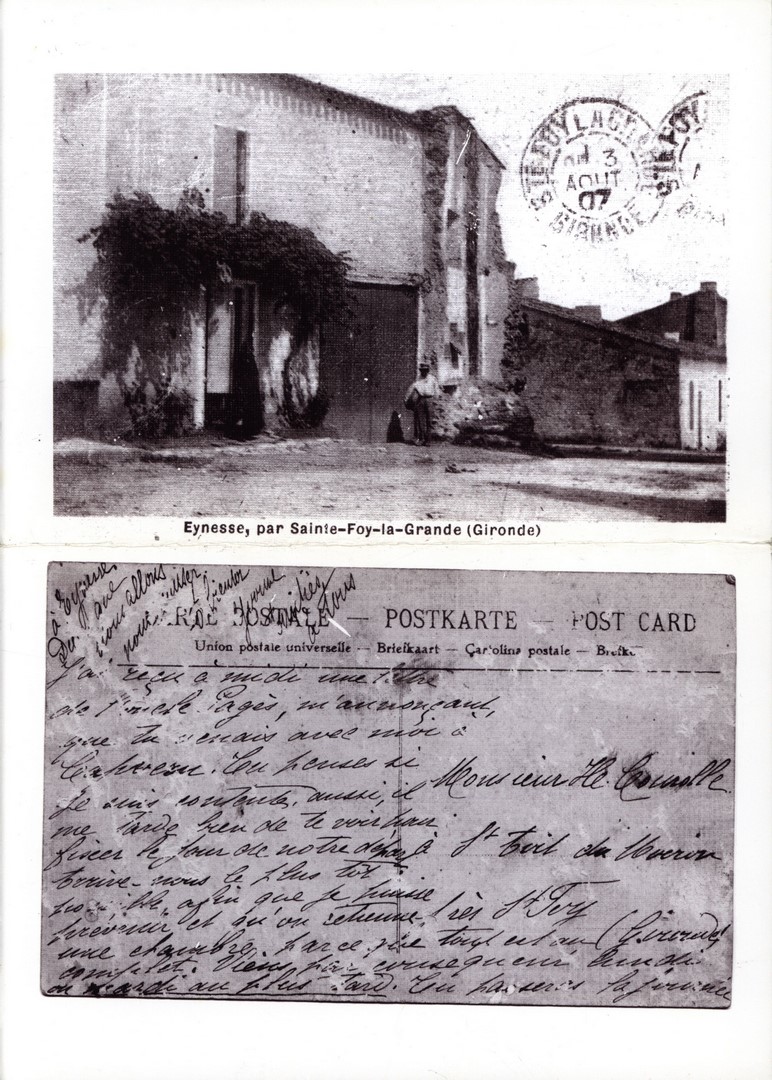 STE FOY LA GRANDE
3
AOUT
07
GIRONDE
STE FOY
Eynesse, par Sainte-Foy-la-Grande (Gironde)
à Eynesse
que
nous allons
pour
Yvonne
amitiés
à tous
POSTALE — POSTKARTE — POST CARD
Union postale universelle — Briefkaart — Cartolina postale —
J'ai reçu à midi une lettre
de Pagès, m'annonçant,
que tu venais avec moi à
Capvern. Tu penses si
je suis contente, aussi, il
me tarde bien de te voir pour
fixer le jour de notre départ
le plus tôt
possible afin que je puisse
prévenir et qu'on retienne
une chambre, parce que tout est au
complet. Viens par conséquent lundi
ou mardi au plus tard. Tu passeras la journée
Monsieur
à St
près St Foy
(Gironde)